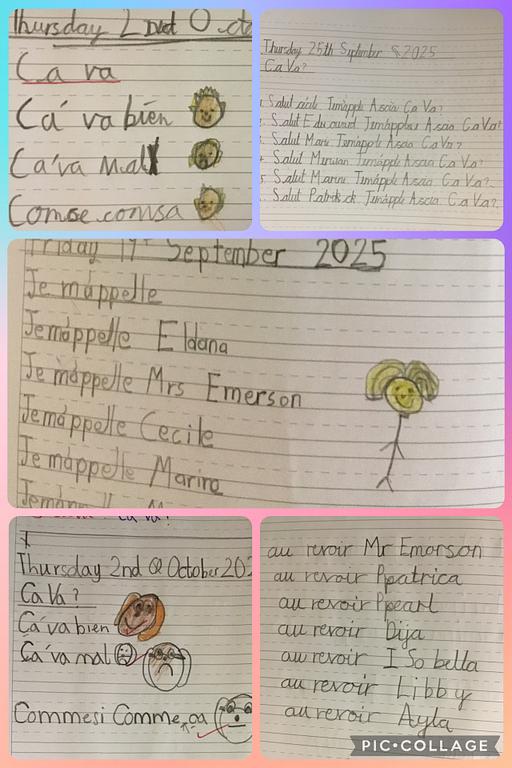 Thursday 2nd Octo
Ca va
Ca va bien
Ca'va mal
Comse comsa
Thursday 25th September 2025
Ca Va?
Salut Jemapple Ascia Ca Va?
Salut Ascia Ca Va?
Salut Marie Jemapple Ascia Ca Va?
Salut Jemapple Ascia Ca Va?
Salut Marine Jemapple Ascia Ca Va?
Salut Jemapple Ascia Ca Va?
Friday September 2025
Je mappelle
Jemappelle Eldana
Je mappelle Mrs Emerson
Jemappelle Cecile
Je mappelle Marine
ca va?
Thursday 2nd October 202
Ca Va?
Ca'va bien
Ca'va mal
Commesi Comme ca
au revoir Mr Emorson
au revoir Ppatrica
au revoir Ppearl
au revoir Dija
au revoir I So bella
au revoir Libby
au revoir Ayla
PIC•COLLAGE